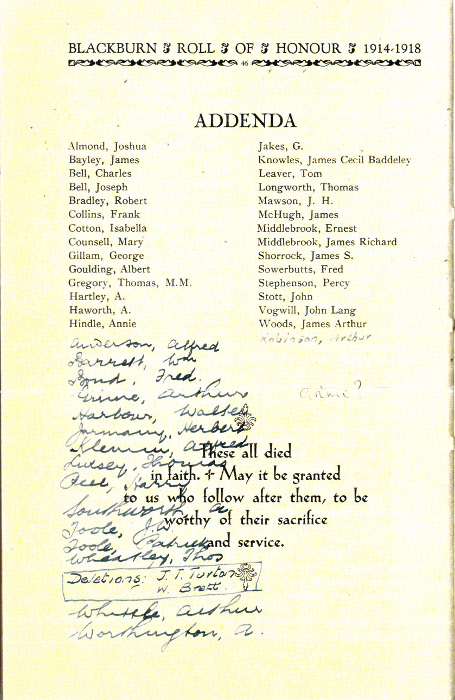 BLACKBURN ROLL OF HONOUR 1914-1918
46
ADDENDA
Almond, Joshua
Bayley, James
Bell, Charles
Bell, Joseph
Bradley, Robert
Collins, Frank
Cotton, Isabella
Counsell, Mary
Gillam, George
Goulding, Albert
Gregory, Thomas, M.M.
Hartley, A.
Haworth, A.
Hindle, Annie
Jakes, G.
Knowles, James Cecil Baddeley
Leaver, Tom
Longworth, Thomas
Mawson, J. H.
McHugh, James
Middlebrook, Ernest
Middlebrook, James Richard
Shorrock, James S.
Sowerbutts, Fred
Stephenson, Percy
Stott, John
Vogwill, John Lang
Woods, James Arthur
Robinson, Arthur
Anderson, Alfred
Barrett, Wm
Bond, Fred.
Arthur
Harbour, Walter
Jarmany, Herbert
Alfred
Livesey, Thomas
Peel, Harry
Southworth, A
Toole, J.W
Toole, Patrick
Wheatley, Thos
Deletions: J. T. Turton
W. Brett.
Whittle, Arthur
Worthington, A.
These all died
in faith. + May it be granted
to us who follow after them, to be
worthy of their sacrifice
and service.